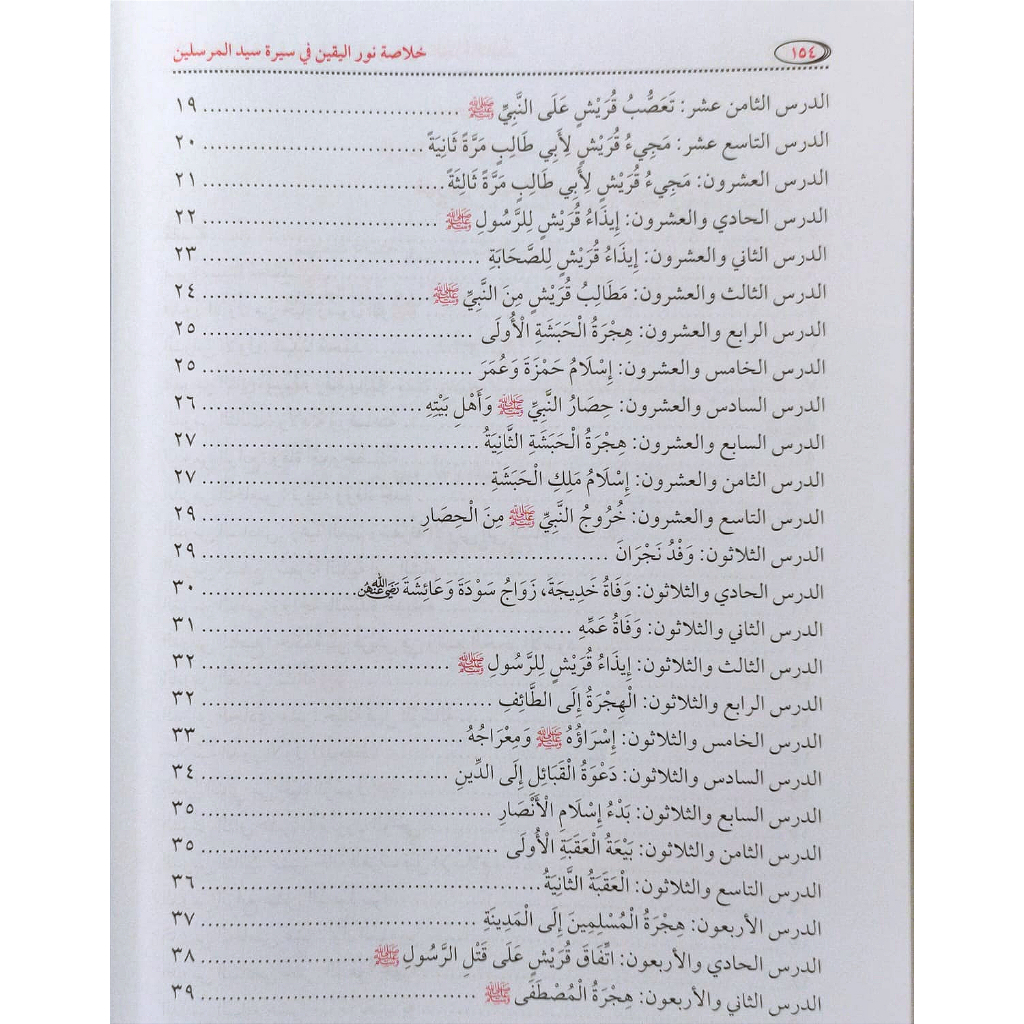 ١٥٤ خلاصة نور اليقين في سيرة سيد المرسلين
الدرس الثامن عشر: تَعَصُّبُ قُرَيْشٍ عَلَى النَّبِيِّ ﷺ ........................ ١٩
الدرس التاسع عشر: مَجِيءُ قُرَيْشٍ لِأَبِي طَالِبٍ مَرَّةً ثَانِيَةً ........................ ٢٠
الدرس العشرون: مَجِيءُ قُرَيْشٍ لِأَبِي طَالِبٍ مَرَّةً ثَالِثَةً ........................ ٢١
الدرس الحادي والعشرون: إِيذَاءُ قُرَيْشٍ لِلرَّسُولِ ﷺ ........................ ٢٢
الدرس الثاني والعشرون: إِيذَاءُ قُرَيْشٍ لِلصَّحَابَةِ ........................ ٢٣
الدرس الثالث والعشرون: مَطَالِبُ قُرَيْشٍ مِنَ النَّبِيِّ ﷺ ........................ ٢٤
الدرس الرابع والعشرون: هِجْرَةُ الْحَبَشَةِ الْأُولَى ........................ ٢٥
الدرس الخامس والعشرون: إِسْلَامُ حَمْزَةَ وَعُمَرَ ........................ ٢٥
الدرس السادس والعشرون: حِصَارُ النَّبِيِّ ﷺ وَأَهْلِ بَيْتِهِ ........................ ٢٦
الدرس السابع والعشرون: هِجْرَةُ الْحَبَشَةِ الثَّانِيَةُ ........................ ٢٧
الدرس الثامن والعشرون: إِسْلَامُ مَلِكِ الْحَبَشَةِ ........................ ٢٧
الدرس التاسع والعشرون: خُرُوجُ النَّبِيِّ ﷺ مِنَ الْحِصَارِ ........................ ٢٩
الدرس الثلاثون: وَفْدُ نَجْرَانَ ........................ ٢٩
الدرس الحادي والثلاثون: وَفَاةُ خَدِيجَةَ، زَوَاجُ سَوْدَةَ وَعَائِشَةَ رَضِيَ اللَّهُ عَنْهُنَّ ........................ ٣٠
الدرس الثاني والثلاثون: وَفَاةُ عَمِّهِ ........................ ٣١
الدرس الثالث والثلاثون: إِيذَاءُ قُرَيْشٍ لِلرَّسُولِ ﷺ ........................ ٣٢
الدرس الرابع والثلاثون: الْهِجْرَةُ إِلَى الطَّائِفِ ........................ ٣٢
الدرس الخامس والثلاثون: إِسْرَاؤُهُ ﷺ وَمِعْرَاجُهُ ........................ ٣٣
الدرس السادس والثلاثون: دَعْوَةُ الْقَبَائِلِ إِلَى الدِّينِ ........................ ٣٤
الدرس السابع والثلاثون: بَدْءُ إِسْلَامِ الْأَنْصَارِ ........................ ٣٥
الدرس الثامن والثلاثون: بَيْعَةُ الْعَقَبَةِ الْأُولَى ........................ ٣٥
الدرس التاسع والثلاثون: الْعَقَبَةُ الثَّانِيَةُ ........................ ٣٦
الدرس الأربعون: هِجْرَةُ الْمُسْلِمِينَ إِلَى الْمَدِينَةِ ........................ ٣٧
الدرس الحادي والأربعون: اتِّفَاقَ قُرَيْشٍ عَلَى قَتْلِ الرَّسُولِ ﷺ ........................ ٣٨
الدرس الثاني والأربعون: هِجْرَةُ الْمُصْطَفَى ﷺ ........................ ٣٩